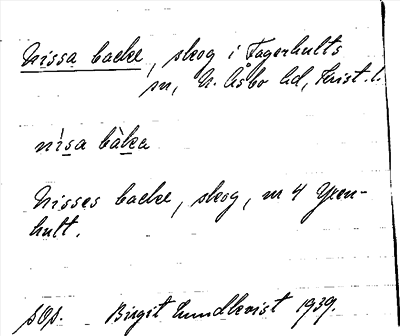 Nissa backe, skog i Fagerhults
sn, N. Åsbo hd, Krist. l.
nìsa bàka
Nisses backe, skog, nr 4 Yxen-
hult.
sOp. Birgit Lundkvist 1939.